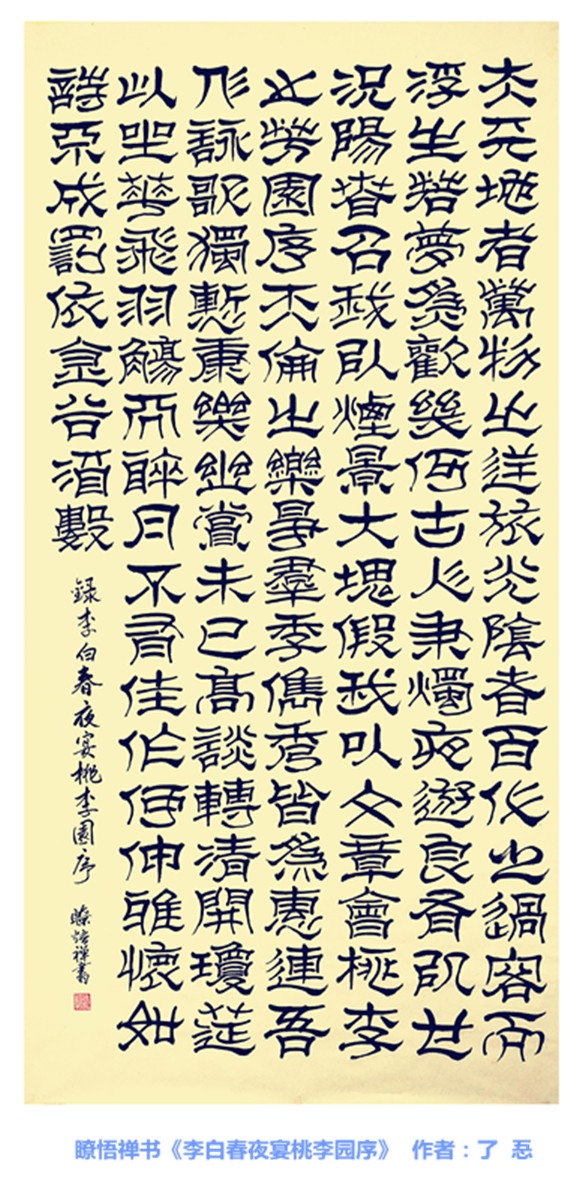 夫天地者萬物之逆旅光陰者百代之過客而
浮生若夢為歡幾何古人秉燭夜遊良有以也
況陽春召我以煙景大塊假我以文章會桃李
之芳園序天倫之樂事羣季儁秀皆為惠連吾
人詠歌獨慙康樂幽賞未已高談轉清開瓊筵
以坐華飛羽觴而醉月不有佳作何伸雅懷如
詩不成罰依金谷酒數
録李白春夜宴桃李園序 瞭悟禅書
瞭悟禅书《李白春夜宴桃李园序》 作者：了 忍